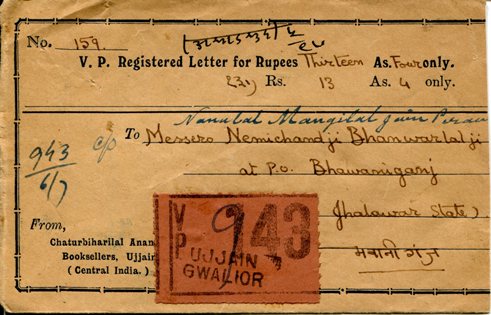 No. 159.
V. P. Registered Letter for Rupees Thirteen As. Four only.
Rs. 13 As. 4 only.
Nanulal Mangilal Jain
c/o
To Messers Nemichandji Bhanwarlalji
at P.o. Bhawaniganj
943
6/7
(Jhalawar State)
भवानीगंज
From,
Chaturbiharilal Anan
Booksellers, Ujjain
( Central India. )
V P 943
UJJAIN
GWALIOR